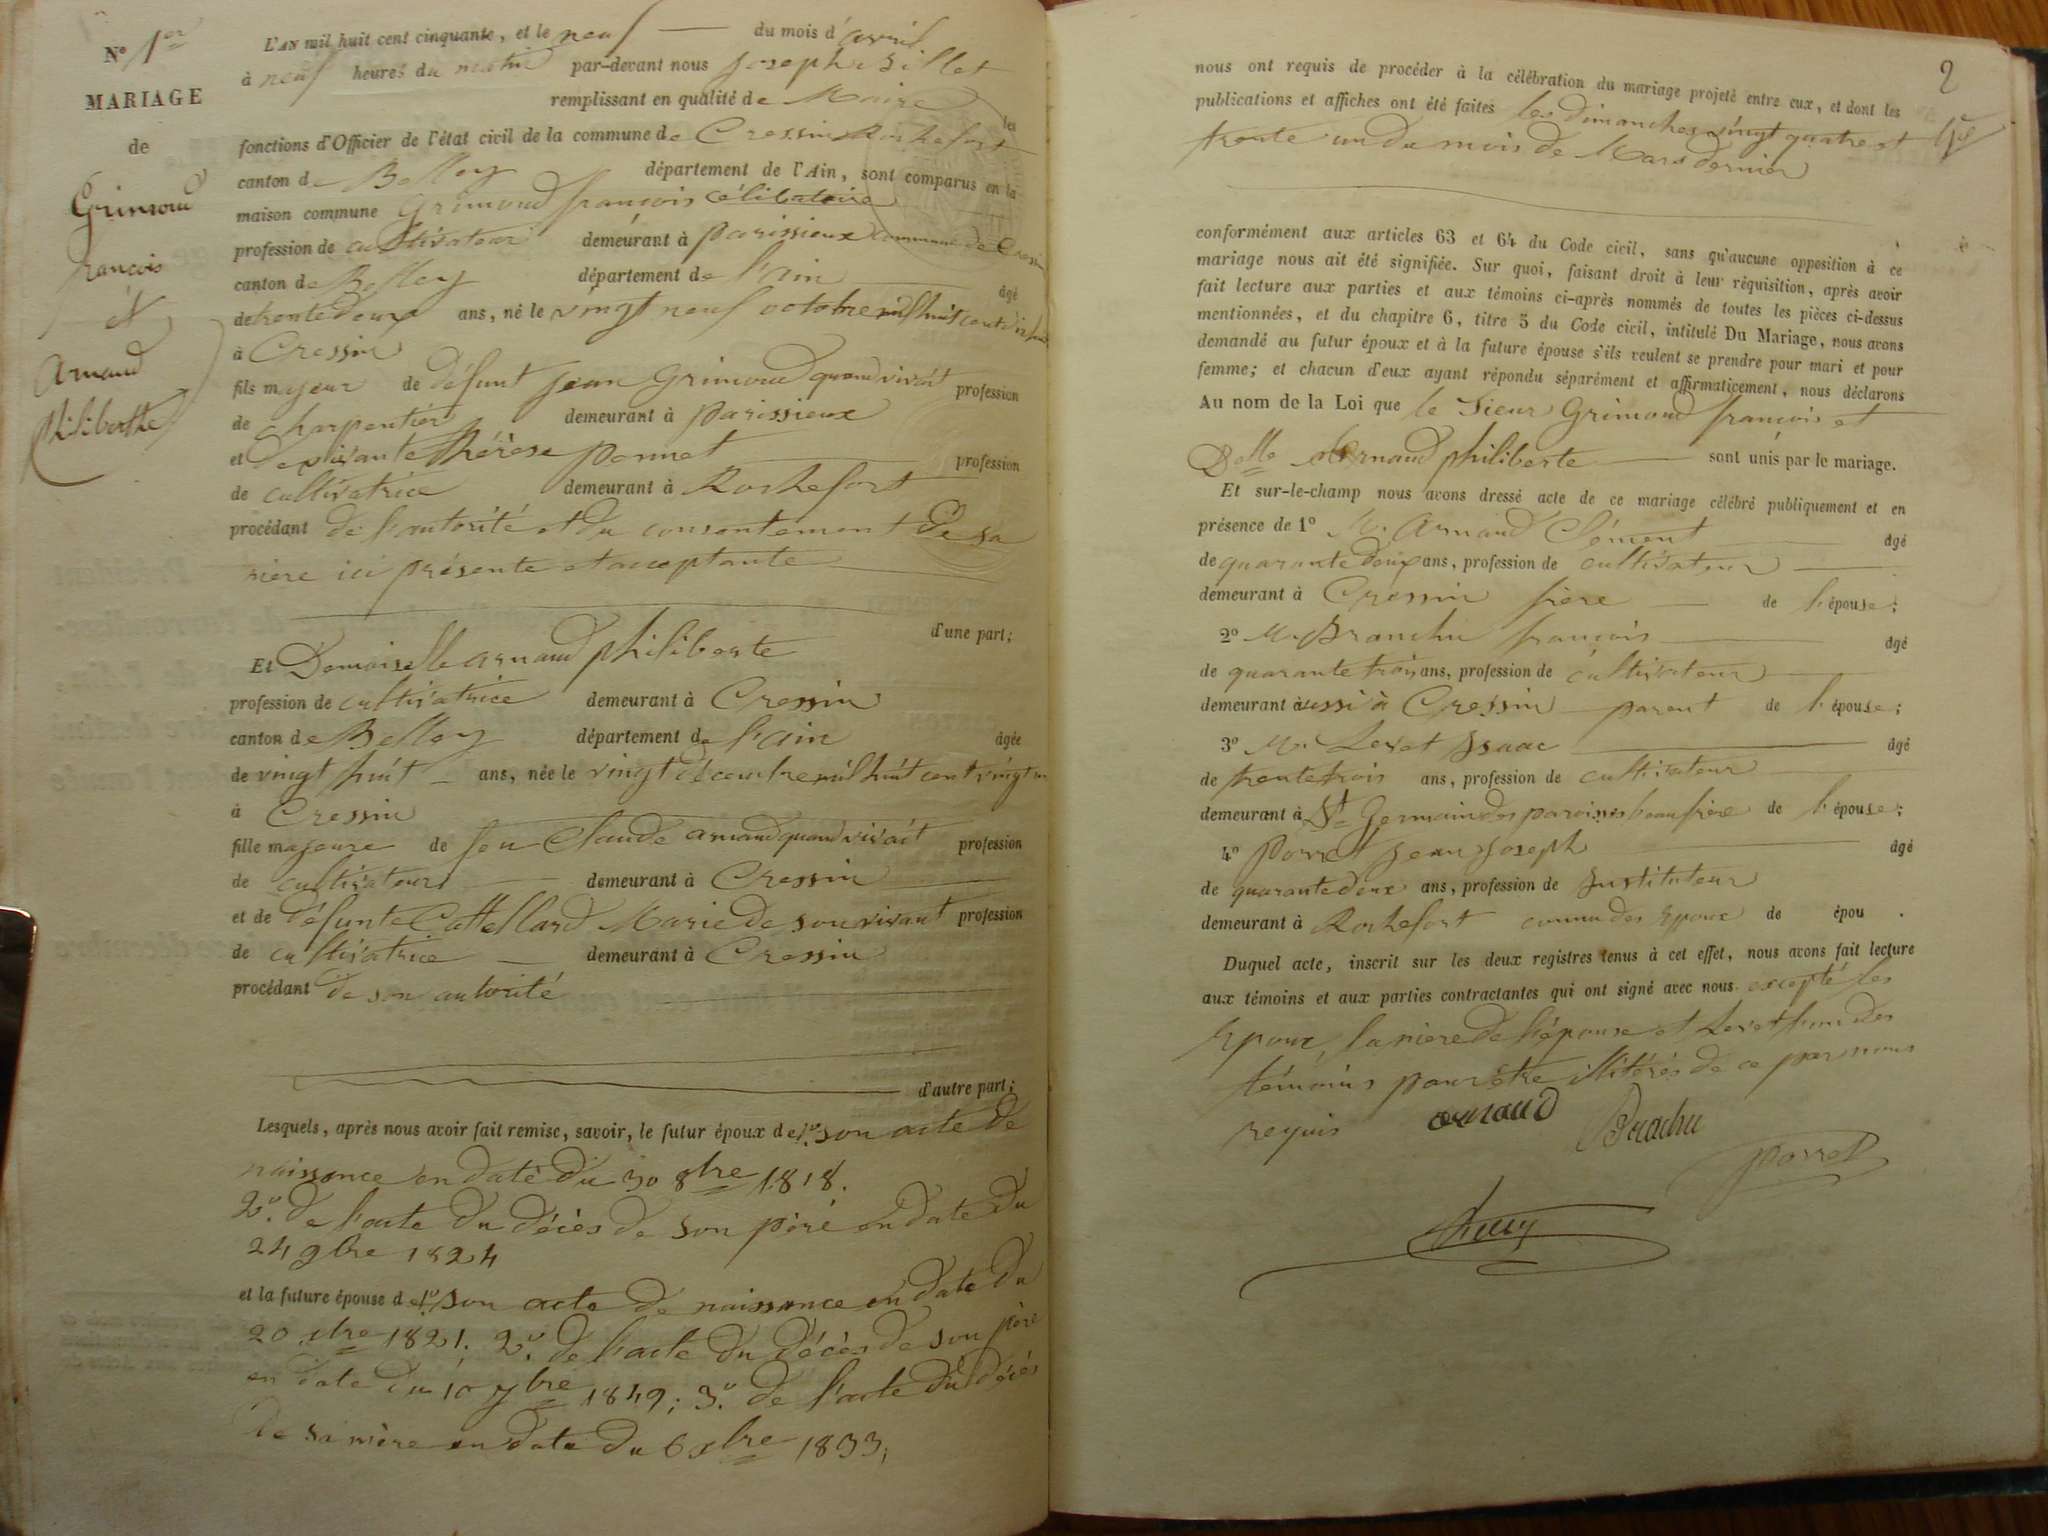 N° 1er
MARIAGE
de
Grimoud
françois
et
Arnaud
philiberthe
L'AN mil huit cent cinquante, et le neuf du mois d'avril
à neuf heures du matin par-devant nous Joseph Sillet
remplissant en qualité de Maire les
fonctions d'Officier de l'état civil de la commune de Cressin Rochefort
canton de Belley département de l'Ain, sont comparus en la
maison commune Grimoud françois célibataire
profession de cultivateur demeurant à parissieux commune de Cressin
canton de Belley département de l'ain âgé
de trente deux ans, né le vingt neuf octobre mil huit cent dix huit
à Cressin
fils majeur de défunt Jean Grimoud quand vivait profession
de charpentier demeurant à parissieux
et de vivante thérèse ponnet profession
de cultivatrice demeurant à Rochefort
procédant de l'autorité et du consentement de sa
mère ici présente et acceptante
d'une part;
Et Demoiselle arnaud philiberte
profession de cultivatrice demeurant à Cressin
canton de Belley département de l'ain âgée
de vingt huit ans, née le vingt décembre mil huit cent vingt un
à Cressin
fille majeure de feu Claude arnaud quand vivait profession
de cultivateur demeurant à Cressin
et de défunte Cattelland Marie de son vivant profession
de cultivatrice demeurant à Cressin
procédant de son autorité
d'autre part;
Lesquels, après nous avoir fait remise, savoir, le futur époux de 1° son acte de
naissance en date du 30 8bre 1818.
2° de l'acte du décès de son père en date du
24 9bre 1824
et la future épouse de 1° son acte de naissance en date du
20 xbre 1821. 2° de l'acte du décès de son père
en date du 10 7bre 1849; 3° de l'acte du décès
de sa mère en date du 6 xbre 1833;
2
nous ont requis de procéder à la célébration du mariage projeté entre eux, et dont les
publications et affiches ont été faites les dimanches vingt quatre et
trente un du mois de Mars dernier
conformément aux articles 63 et 64 du Code cicil, sans qu'aucune opposition à ce
mariage nous ait été signifiée. Sur quoi, faisant droit à leur réquisition, après avoir
fait lecture aux parties et aux témoins ci-après nommés de toutes les pièces ci-dessus
mentionnées, et du chapitre 6, titre 5 du Code civil, intitulé Du Mariage, nous avons
demandé au futur époux et à la future épouse s'ils veulent se prendre pour mari et pour
femme; et chacun d'eux ayant répondu séparément et affirmaticement, nous déclarons
Au nom de la Loi que le Sieur Grimoud françois et
Delle Arnaud philiberte sont unis par le mariage.
Et sur-le-champ nous avons dressé acte de ce mariage célébré publiquement et en
présence de 1° Mr arnaud Clément âgé
de quarante deux ans, profession de cultivateur
demeurant à Cressin frère de l'épouse;
2° Mr Branchu françois âgé
de quarante trois ans, profession de cultivateur
demeurant aussi à Cressin parent de l'épouse;
3° Mr Levet Isaac âgé
de trente trois ans, profession de cultivateur
demeurant à St Germain des paroisses beau frère de l'épouse;
4° Porret Jean Joseph âgé
de quarante deux ans, profession de Instituteur
demeurant à Rochefort connu des époux de épou .
Duquel acte, inscrit sur les deux registres tenus à cet effet, nous avons fait lecture
aux témoins et aux parties contractantes qui ont signé avec nous excepté les
époux, la mere de l'épouse et Levet l'un des
témoins pour être illitérés de ce par nous
requis arnaud Brachu
porret